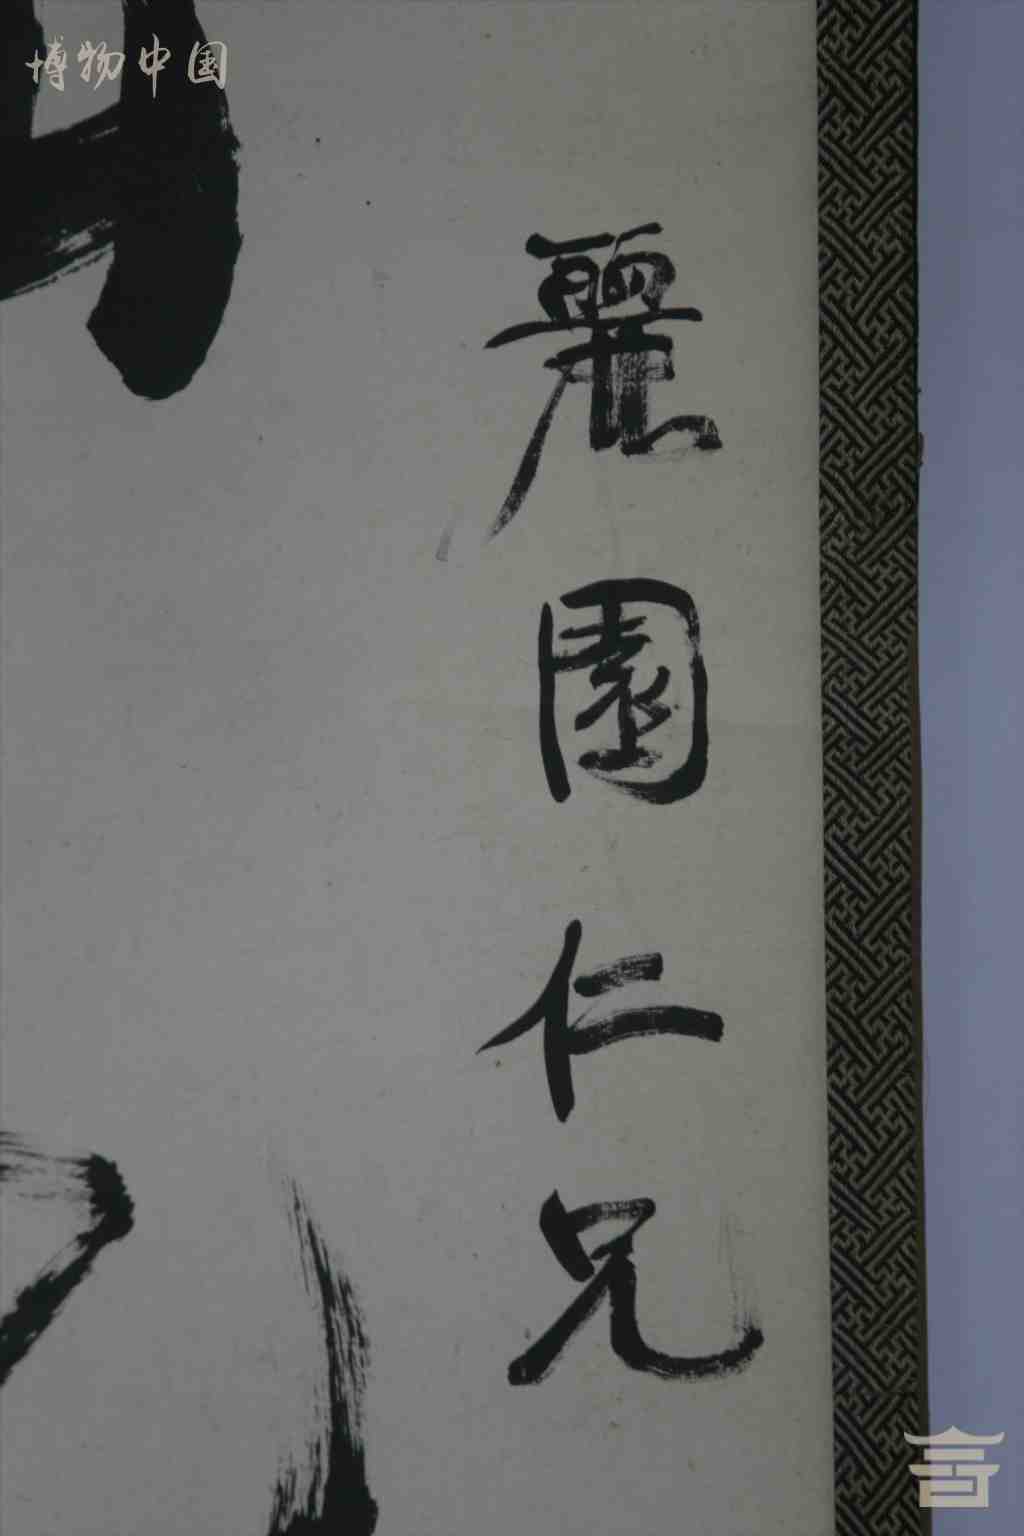 博物中国
麗園仁兄